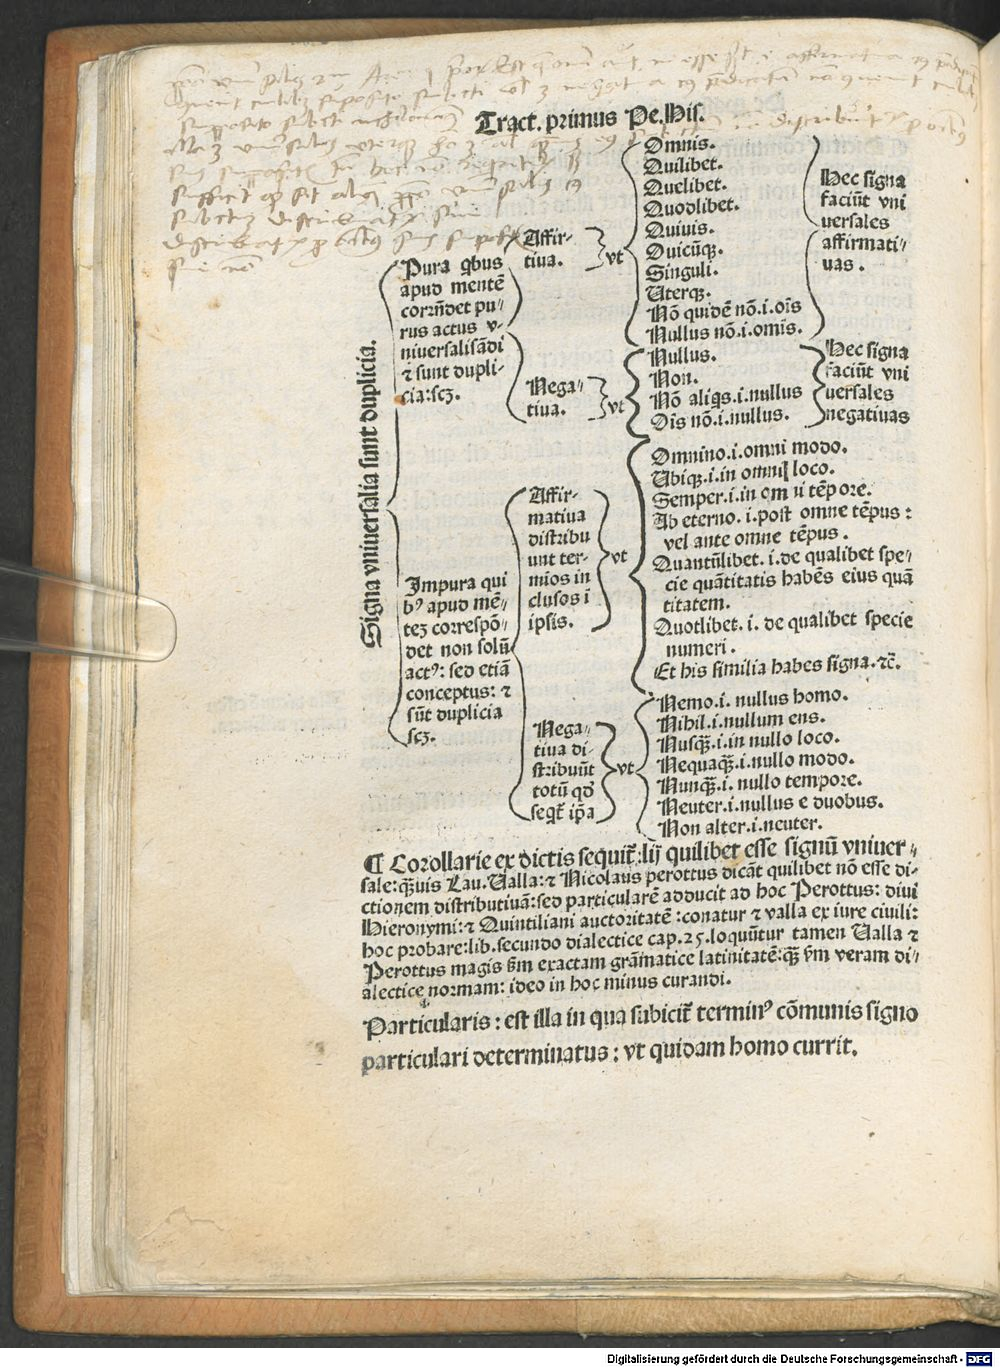 Tract. primus Pe. His.
Signa vniuersalia sunt duplicia.
Pura qbus
apud mentē
corrñdet pu-
rus actus v-
niuersalisādi
⁊ sunt dupli-
cia:scꝫ.
Affir-
tiua.
vt
Omnis.
Quilibet.
Quelibet.
Quodlibet.
Quiuis.
Quicūqꝫ.
Singuli.
Uterqꝫ.
Nō quidē nō.i.oīs
Nullus nō.i.omis.
Hec signa
faciūt vni
uersales
affirmati-
uas.
Nega-
tiua.
vt
Nullus.
Non.
Nō aliqs.i.nullus
Oīs nō.i.nullus.
Hec signa
faciūt vni
uersales
negatiuas
Impura qui
bꝰ apud mē-
teꝫ correspō-
det non solū
actꝰ: sed etiā
conceptus: ⁊
sūt duplicia
scꝫ.
Affir-
matiua
distribu
unt ter-
mios in
clusos i
ipsis.
vt
Omnino.i.omni modo.
Ubiqꝫ.i.in omni loco.
Semper.i.in om ii tēpore.
Ab eterno.i.post omne tēpus:
vel ante omne tēpus.
Quantūlibet.i.de qualibet spe-
cie quātitatis habēs eius quā
titatem.
Quotlibet.i.de qualibet specie
numeri.
Et his similia habes signa.⁊c̄.
Nega-
tiua di-
stribuūt
totū qd'
seqt̄ ip̄a
vt
Nemo.i.nullus homo.
Nihil.i.nullum ens.
Nusq̄ꝫ.i.in nullo loco.
Nequaq̄ꝫ.i.nullo modo.
Nunq̄ꝫ.i.nullo tempore.
Neuter.i.nullus e duobus.
Non alter.i.neuter.
¶ Corollarie ex dictis sequit̄:lij quilibet esse signū vniuer-
sale:q̄ꝫuis Lau.Ualla:⁊ Nicolaus perottus dicāt quilibet nō esse di-
ctionem distributiuā:sed particularē adducit ad hoc Perottus: diui
Hieronymi:⁊ Quintiliani auctoritatē:conatur ⁊ valla ex iure ciuili:
hoc probare:lib.secundo dialectice cap.25.loquūtur tamen Ualla ⁊
Perottus magis s̄m exactam grāmatice latinitatē:q̄ꝫ s̄m veram di-
alectice normam: ideo in hoc minus curandi.
Particularis: est illa in qua subicit̄ terminꝰ cōmunis signo
particulari determinatus: vt quidam homo currit.
Digitalisierung gefördert durch die Deutsche Forschungsgemeinschaft - DFG